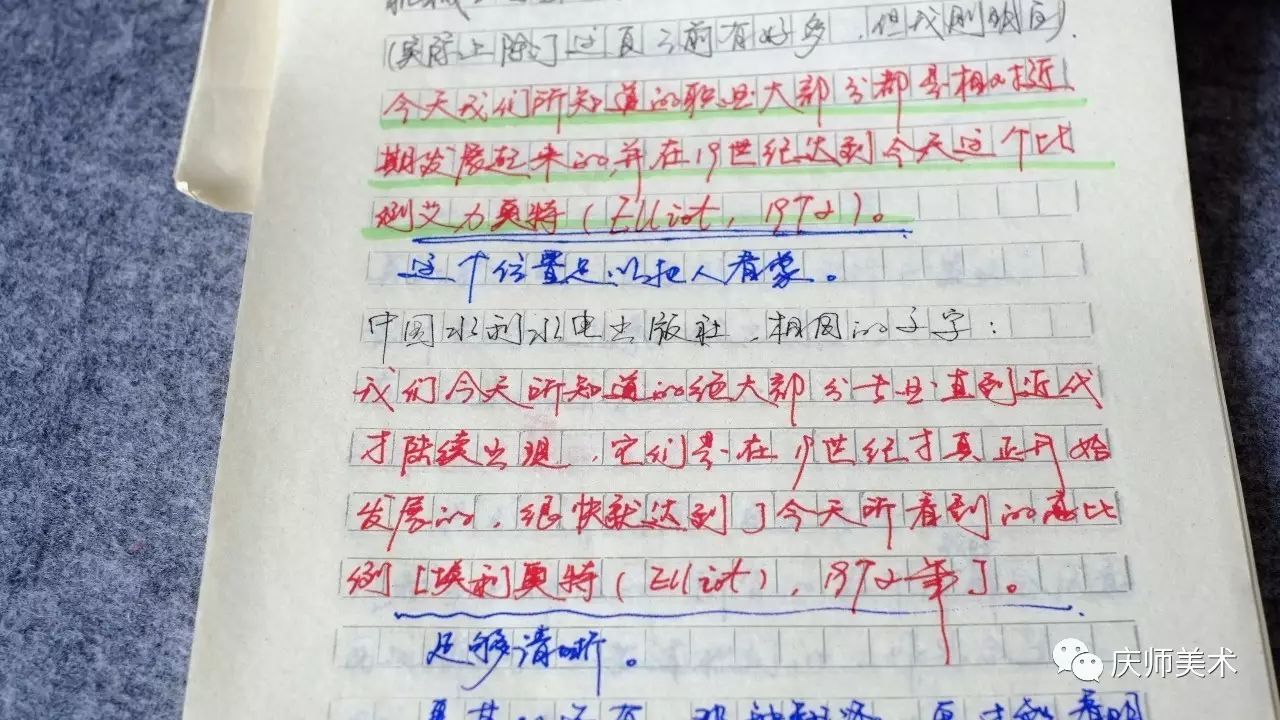 (实际上除了这页之前有好多，但我则明白).
今天我们所知道的职业大部分都是相对近
期发展起来的,并在19世纪达到今天这个比
例艾力奥特(Elliot, 1972)。
这个位置足以把人看蒙。
中国水利水电出版社,相同的子字:
我们今天所知道的绝大部分专业直到近代
才陆续出现,它们是在19世纪才真正开始
发展的,很快就达到了今天所看到的高比
例[埃利奥特(Elliot),1972年]。
足够清晰。
庆师美术